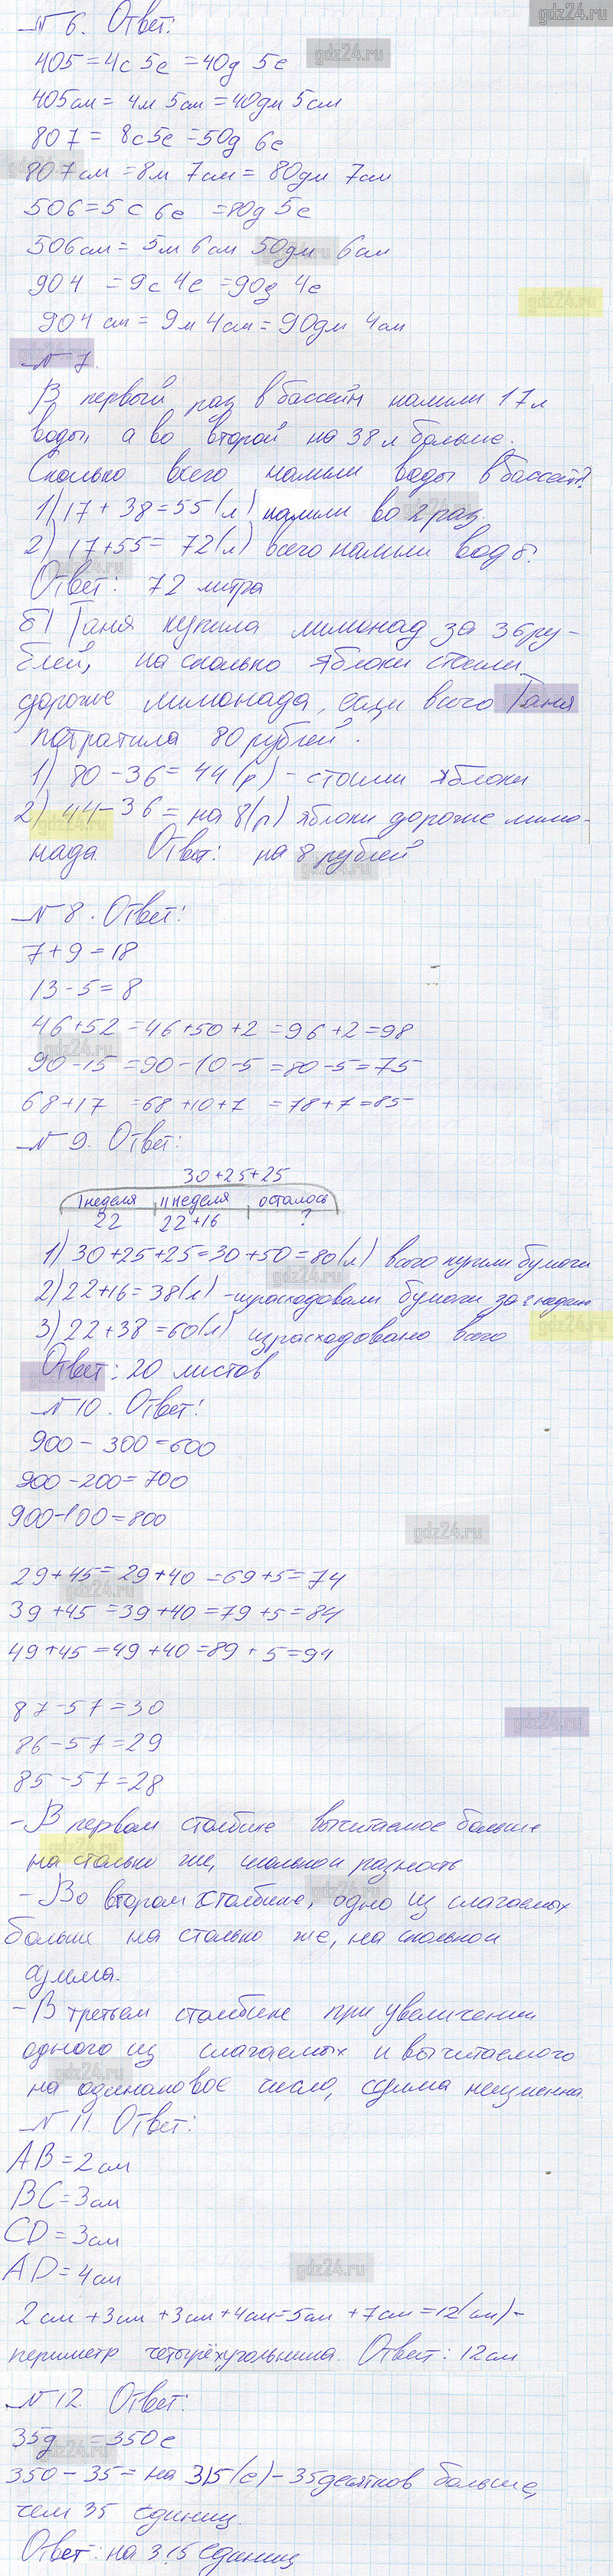 gdz24.ru
№ 6. Ответ:
405 = 4с 5е = 40д 5е
405см = 4м 5см = 40дм 5см
807 = 8с5е = 50д 6е
807см = 8м 7см = 80дм 7см
506 = 5с 6е = 80д 5е
506см = 5м 6см 50дм 6см
904 = 9с 4е = 90д 4е
904 см = 9м 4см = 90дм 4см
№ 7.
В первый раз в бассейн налили 17 л
воды, а во второй на 38 л больше.
Сколько всего налили воды в бассейн?
1) 17 + 38 = 55 (л) налили во 2 раз.
2) 17+55 = 72 (л) всего налили воды.
Ответ: 72 литра
б) Таня купила лимонад за 36 ру-
блей, на сколько яблоки стоили
дороже лимонада, если всего Таня
потратила 80 рублей.
1) 80 - 36 = 44 (р) - стоили яблоки
2) 44 - 36 = на 8 (р) яблоки дороже лимо-
нада. Ответ: на 8 рублей
№ 8. Ответ:
7 + 9 = 18
13 - 5 = 8
46 + 52 = 46 + 50 + 2 = 96 + 2 = 98
90 - 15 = 90 - 10 - 5 = 80 - 5 = 75
68 + 17 = 68 + 10 + 7 = 78 + 7 = 85
№ 9. Ответ:
30 + 25 + 25
I неделя II неделя осталось
22 22 + 16 ?
1) 30 + 25 + 25 = 30 + 50 = 80 (л) всего купили бумаги
2) 22 + 16 = 38 (л) - израсходовали бумаги за 2 неделю
3) 22 + 38 = 60 (л) израсходовано всего
Ответ: 20 листов
№ 10. Ответ:
900 - 300 = 600
900 - 200 = 700
900 - 100 = 800
29 + 45 = 29 + 40 = 69 + 5 = 74
39 + 45 = 39 + 40 = 79 + 5 = 84
49 + 45 = 49 + 40 = 89 + 5 = 94
87 - 57 = 30
86 - 57 = 29
85 - 57 = 28
- В первом столбике вычитаемое больше
на столько же, сколькой разность
- Во втором столбике, одно из слагаемых
больше на столько же, на сколькой
сумма.
- В третьем столбике при увеличении
одного из слагаемых и вычитаемого
на одинаковое число, сумма неизменна.
№ 11. Ответ:
AB = 2см
BC = 3см
CD = 3см
AD = 4см
2см + 3см + 3см + 4см = 5см + 7см = 12 (см) -
периметр четырёхугольника. Ответ: 12см
№ 12. Ответ:
35д = 350е
350 - 35 = на 315 (е) - 35 десятков больше,
чем 35 единиц.
Ответ: на 315 единиц